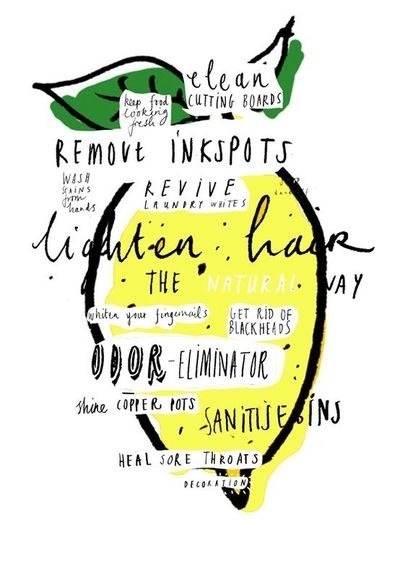 clean
CUTTING BOARDS
keep food
looking
fresh
REMOVE INKSPOTS
WASH
STAINS
from
hands
REVIVE
LAUNDRY WHITES
lighten hair
THE NATURAL WAY
whiten your fingernails
GET RID OF
BLACKHEADS
ODOR-ELIMINATOR
shine COPPER POTS
SANITISE BINS
HEAL SORE THROATS
DECORATION